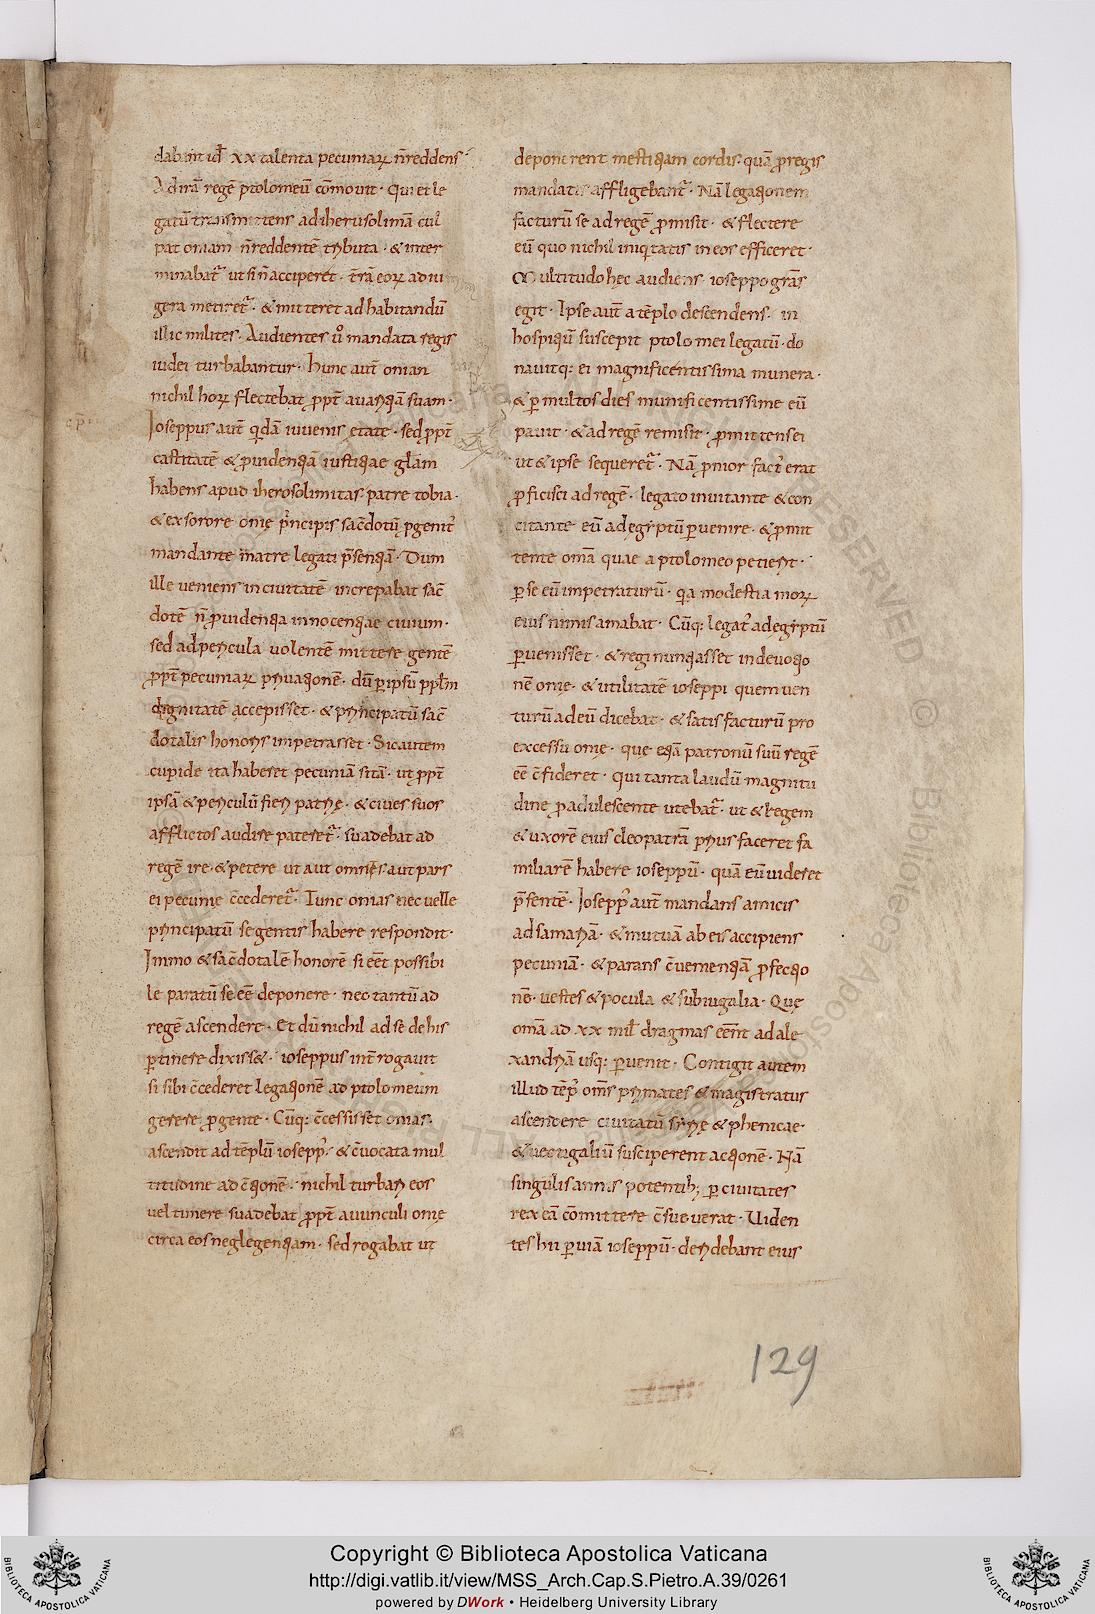 dabant id÷ xx talenta pecuniaꝝ n̄ reddens·
Ad irā regē ptolomeū cōmouit· Qui et le
gatū transmittens ad iherusolimā cul
pat oniam n̄ reddentē tributa· & inter
minabat᷒ ut si n̄ acciperet· t̄rā eoꝝ ad iu
gera metiret᷒· & mitteret ad habitandū
illic milites· Audientes ū mandata regis
iudei turbabantur· hunc aut̄ onian
nichil hoꝝ flectebat ꝓpt̄ auaritiā suam·
Ioseppus aut̄ qdā iuuenis ętate· sed ꝓpt̄
castitatē & ꝓuidentiā iustitiae glām
habens apud iherosolimitas· patre tobia·
& ex sorore onię principis sac̄dotū ꝓgenit᷒
mandante matre legati p̄sentiā· Dum
ille ueniens in ciuitatē increpabat sac̄
dotē n̄ ꝓuidentia innocentiae ciuium·
sed ad pericula uolentē mittere gentē
ꝓpt̄ pecuniaꝝ priuationē· dū ꝑ ipsū ppl̄m
dignitatē accepisset· & principatū sac̄
dotalis honoris impetrasset· Sic autem
cupide ita haberet pecuniā sitā· ut ꝓpt̄
ipsā & periculū fieri patrię· & ciues suos
afflictos audire pateret᷒· suadebat ad
regē ire· & petere ut aut omnes· aut pars
ei pecunię c̄cederet᷒· Tunc onias nec uelle
principatū se gentis habere respondit·
Immo & sac̄dotalē honorē si eēt possibi
le paratū se eē deponere· nec tantū ad
regē ascendere· Et dū nichil ad se de his
ꝑtinere dixiss&· ioseppus int̄rogauit
si sibi c̄cederet legationē ad ptolomeum
gerere ꝓ gente· Cūq: c̄cessisset onias·
ascendit ad tēplū iosepp᷒· & c̄uocata mul
titudine ad c̄tionē· nichil turbari eos
uel timere suadebat ꝓpt̄ auunculi onię
circa eos neglegentiam· sed rogabat ut
deponerent mestitiam cordis· quā ꝓ regis
mandatis affligebant᷒· Nā legationem
facturū se ad regē ꝓmisit· & flectere
eū quo nichil iniqtatis in eos efficeret·
Multitudo hec audiens ioseppo grās
egit· Ipse aut̄ a tēplo descendens· in
hospitiū suscepit ptolomei legatū· do
nauitq: ei magnificentissima munera·
& ꝑ multos dies munificentissime eū
pauit· & ad regē remisit· ꝓmittens ei
ut & ipse sequeret᷒· Nā ꝓnior fact᷒ erat
ꝓficisci ad regē· legato inuitante & con
citante eū ad egyptū ꝑuenire· & ꝓmit
tente omā quae a ptolomeo petierit·
ꝑ se eū impetraturū· qa modestia moꝝ
eius nimis amabat· Cūq: legat᷒ ad egyptū
ꝑuenisset· & regi nuntiasset indeuotio
nē onię· & utilitatē ioseppi quem uen
turū ad eū dicebat· & satis facturū pro
excessu onię· que etiā patronū suū regē
eē c̄fideret· qui tanta laudū magnitu
dine ꝓ adulescente utebat᷒· ut & regem
& uxorē eius cleopatrā prius faceret fa
miliarē habere ioseppū· quā eū uideret
p̄sentē· Iosepp᷒ aut̄ mandans amicis
ad samariā· & mutuā ab eis accipiens
pecuniā· & parans c̄uenientiā ꝓfectio
nē· uestes & pocula & subiugalia· Quę
omā ad xx mil̄ dragmas eēnt ad ale
xandriā usq: ꝑuenit· Contigit autem
illud tēp᷒ om̄s primates & magistratus
ascendere ciuitatū sirię & phenicae·
& uectigaliū susciperent actionē· Nā
singulis annis potentib; ꝑ ciuitates
rex eā cōmittere c̄sueuerat· Uiden
tes hii ꝑ uiā ioseppū· deridebant eius
129
Copyright © Biblioteca Apostolica Vaticana
http://digi.vatlib.it/view/MSS_Arch.Cap.S.Pietro.A.39/0261
powered by DWork • Heidelberg University Library
BIBLIOTECA APOSTOLICA VATICANA
BIBLIOTECA APOSTOLICA VATICANA